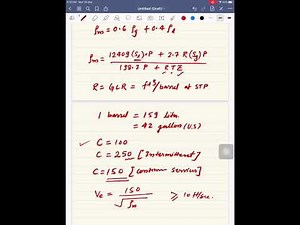 ρm = 0.6 ρg + 0.4 ρl
ρm = 12409 (Sl) * P + 2.7 R (Sg) P
198.7 P + RTZ
R = GLR = ft³/barrel at STP
1 barrel = 159 litre
= 42 gallon (U.S)
✓ C = 100
C = 250 [Intermittent]
C = 150 [continu service]
Ve = 150 / √ρm ⩾ 10 ft/sec.